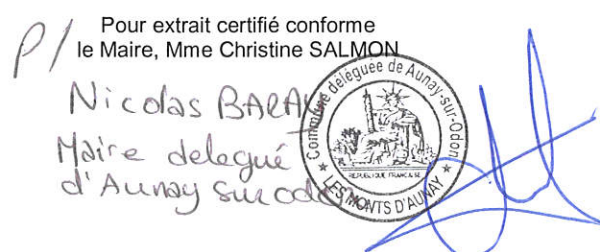 Pour extrait certifié conforme
P/ le Maire, Mme Christine SALMON
Nicolas BARAY
Maire delegué
d'Aunay sur odon
Commune déléguée de Aunay-sur-Odon
REPUBLIQUE FRANCAISE
★ LES MONTS D'AUNAY ★